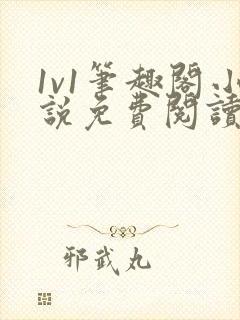 1v1筆趣閣小
說免費閱讀
邪武丸